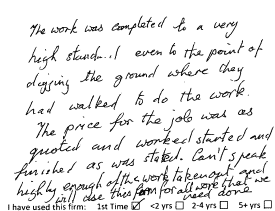 The work was completed to a very
high stand...l even to the point of
digging the ground where they
had walked to do the work.
The price for the job was as
quoted and worked started and
finished as was stated. Can't speak
highly enough of the work taken out and
will use this firm for all work that we
need done
I have used this firm: 1st Time ☑ <2 yrs ☐ 2-4 yrs ☐ 5+ yrs ☐